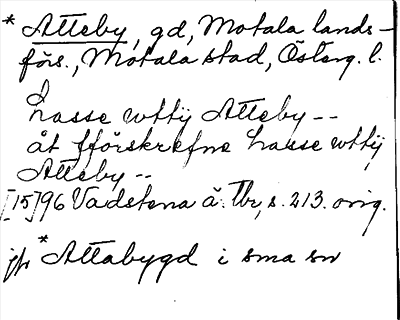 * Atteby, gd, Motala lands-
förs., Motala stad, Österg. l.
Lasse wttij Atteby --
åt fförskrefne Lasse wttij
Atteby --
[15]96 Vadstena ä. Tbr, s. 213. orig.
jfr *Attabygd i sma sn